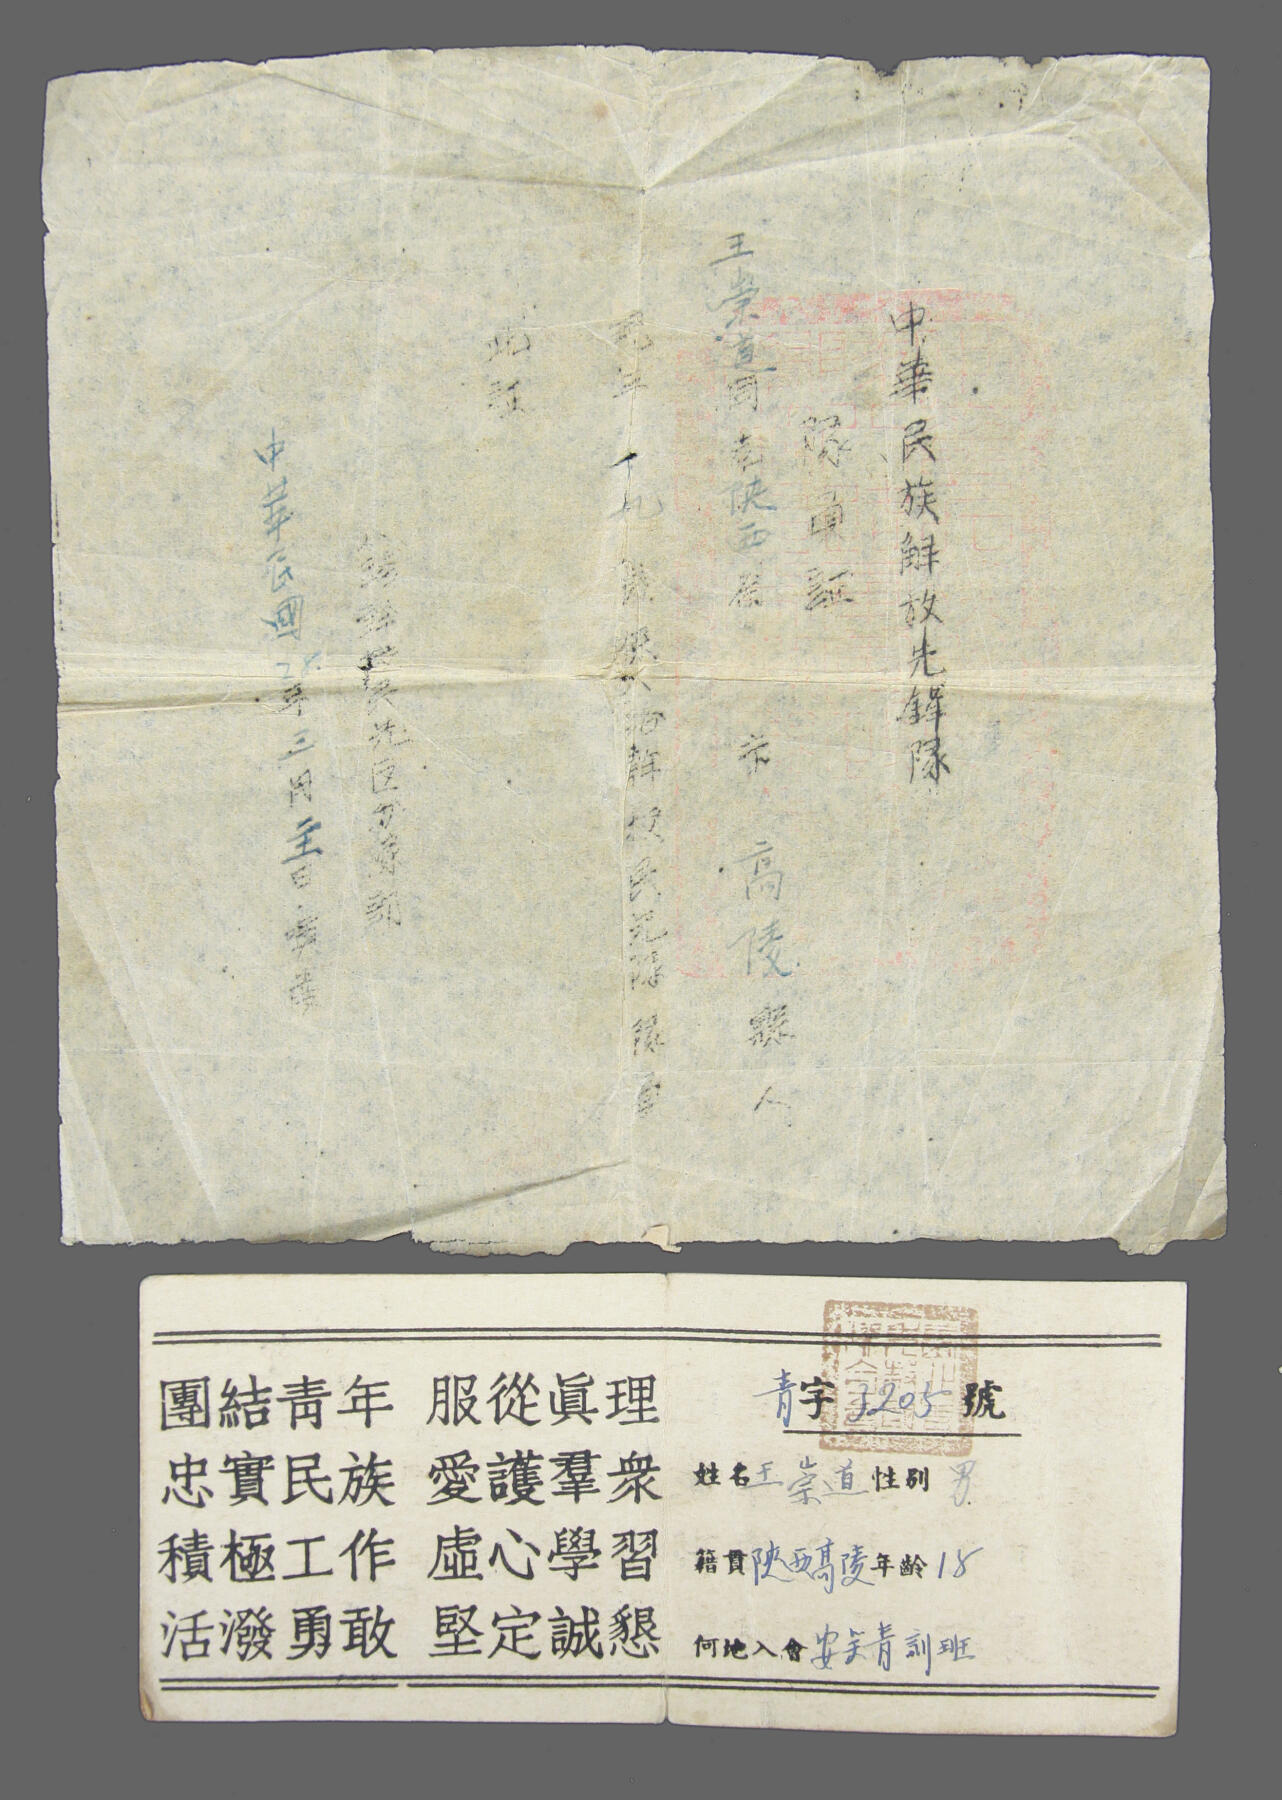 中華民族解放先鋒隊
隊員証
王崇道同志陝西省 市 高陵縣人
現年 十九 歲 民先隊隊員
此証
民先區隊部
中華民國 年三月 日
團結青年 服從眞理
忠實民族 愛護羣衆
積極工作 虛心學習
活潑勇敢 堅定誠懇
青字3205號
姓名王崇道性別男
籍貫陝西高陵年齡18
何地入會安吳青訓班